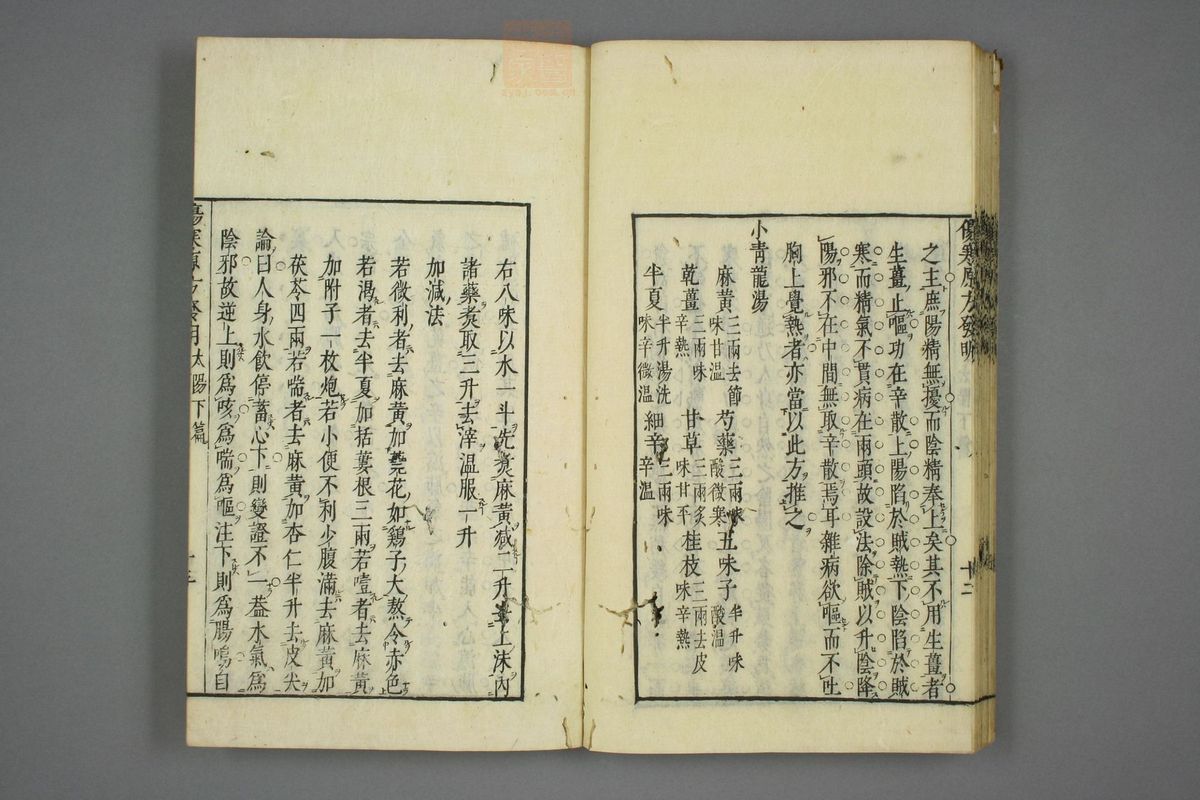 傷寒原方發明
之主庶陽精無擾而陰精奉上矣其不用生薑者
生薑止嘔功在辛散上陽陷於賊熱下陰陷於賊
寒而精氣不貫病在兩頭故設法除賊以升陰降
陽邪不在中間無取辛散焉耳雜病欲嘔而不吐
胸上覺熱者亦當以此方推之
小青龍湯
麻黃三兩去節味甘溫 芍藥三兩味酸微寒 五味子半升味酸溫
乾薑三兩味辛熱 甘草三兩炙味甘平 桂枝三兩去皮味辛熱
半夏半升湯洗味辛微溫 細辛三兩味辛溫
十二
右八味以水一斗先煮麻黃減二升去上沫內
諸藥煮取三升去滓溫服一升
加減法
若微利者去麻黃加蕘花如鷄子大熬令赤色
若渴者去半夏加括蔞根三兩若噎者去麻黃
加附子一枚炮若小便不利少腹滿去麻黃加
茯苓四兩若喘者去麻黃加杏仁半升去皮尖
論曰人身水飲停蓄心下則變證不一蓋水氣為
陰邪故逆上則為咳為喘為嘔注下則為腸鳴自
太陽下篇